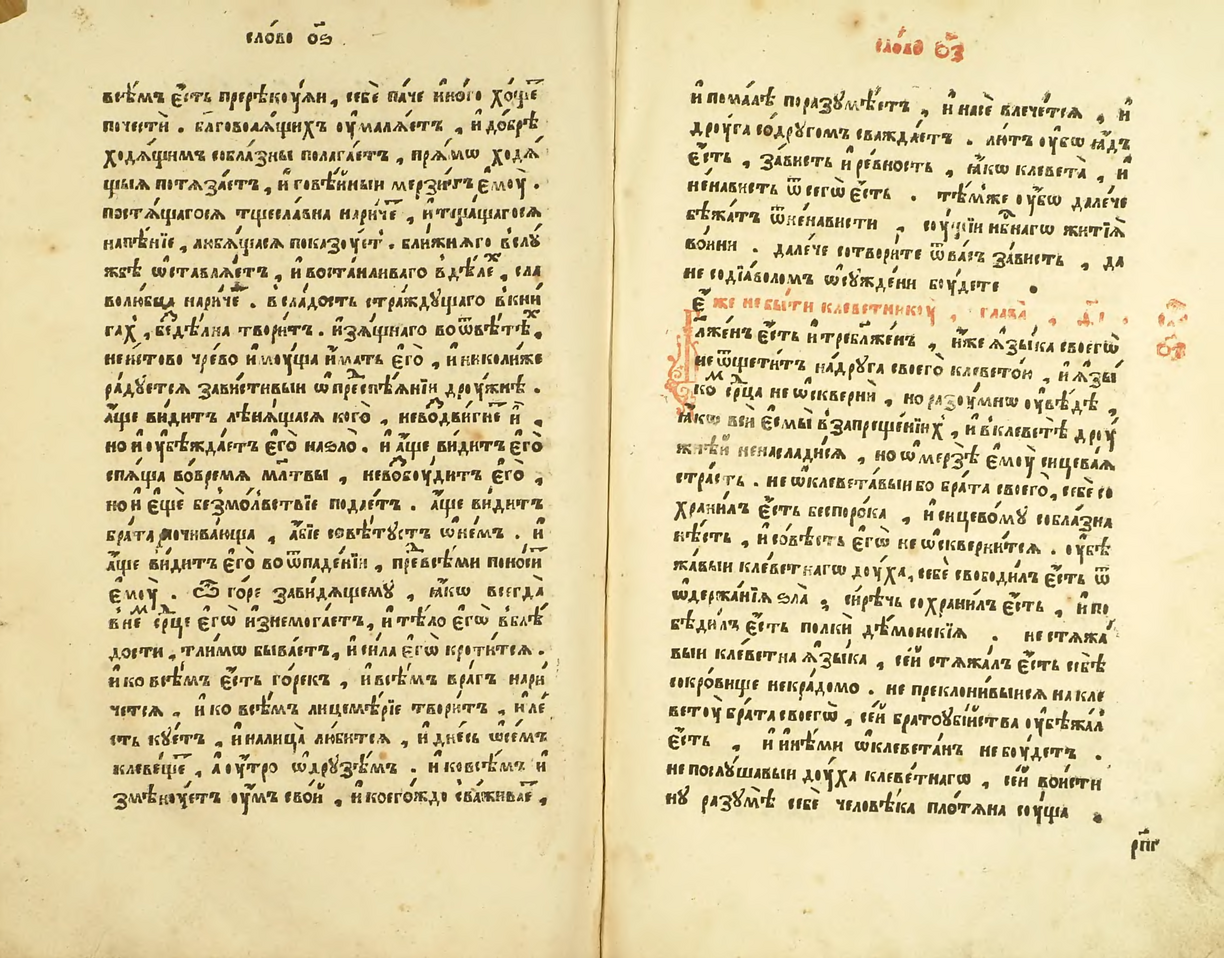 сло́во ѻ҃ѕ .
всѣ́мъ є҆́сть прерѣкоу́ѧи , себѐ па́че и҆но́го хо́щеⷮ
по́чести . благоволѧ́щихъ оу҆малѧ́етъ , и҆ до́брѣ
ходѧ́щимъ собла́зны полага́етъ , прѧ́мѡ ходѧ́
щыѧ потѧза́етъ , и҆ говѣ́йныи мерзи́тъ є҆моу̀ .
постѧ́щагосѧ тщесла́вна нарича́еⷮ , и҆ тща́щагосѧ
на пѣ́нїе , любѧ́щасѧ показоу́етⸯ . бли́жнѧго в слꙋ́
жбѣ ѡ҆ставлѧ́етъ , и҆ воста́нливаго в дѣ́леⷯ , сла
волю́бца нарич́еⷮ . в сла́дость стра́ждꙋщаго в кни́
гаⷯ , бедѣ́лна твори́тъ . и҆зѧ́щнаго во ѿвѣ́тѣⷯ ,
неи́стово чре́во и҆моу́ща и҆́мать є҆го̀ , и҆ николи́же
ра́дꙋетсѧ зави́стивыи ѡ҆ преспѣ́ѧнїи дроу́жнѣ .
а҆́ще ви́дитъ лѣнѧ́щасѧ кого̀ , невозⷣви́гнеⷮ и҆̀ ,
но и҆ оу҆бѣжда́етъ є҆го̀ на ѕло̀ . и҆ а҆́ще ви́дитъ є҆го̀
спѧ́ща во вре́мѧ мл҃твы , невозⸯбоу́дитъ є҆го̀ ,
но и҆ є҆щѐ безмо́лвствїе пода́етъ . а҆́ще ви́дитъ
бра́та почива́юща , а҆́бїе совѣ́тꙋетъ ѡ҆ не́мъ . и҆
а҆́ще ви́дитъ є҆го̀ во ѿпаде́нїи , преⷣ всѣ́ми поно́ситⸯ
є҆моу̀ . Ѽ го́ре зави́дѧщемꙋ , ꙗ҆́кѡ всегда̀
в неⷨ срⷣце є҆гѡ̀ и҆знемога́етъ , и҆ тѣ́ло є҆гѡ̀ в блѣ́
дости , тли́мѡ быва́етъ , и҆ си́ла є҆гѡ̀ кроти́тсѧ .
и҆ ко всѣ́мъ є҆́сть го́рекъ , и҆ всѣ́мъ вра́гъ нари
че́тсѧ , и҆ ко всѣ́мъ лицемѣ́рїе твори́тъ , и҆ ле́
сть кꙋ́етъ , и҆ на лица̀ лю́битсѧ , и҆ дне́сь ѡ҆ се́мъ
клеве́щеⷮ , а҆ оу҆́тро ѡ҆ дрꙋзѣ́мъ . и҆ ко всѣ́мъ и҆
змѣноу́етъ оу҆́мъ сво́й , и҆ коего́ждо сва́живаеⷮ ,
сло́во ѻ҃з
и҆ пома́лѣ поразꙋмѣ́етъ , и҆ на сѐ влече́тсѧ , и҆
дроу́га со дрꙋ́гомъ сважда́етъ . лю́тъ оу҆́бѡ ꙗ҆́дъ
є҆́сть , за́висть и҆ ре́вность , ꙗ҆́кѡ клевета̀ , и҆
не́нависть ѿ сегѡ̀ є҆́сть . тѣ́мже оу҆́бѡ дале́че
бѣжа́тъ ѿ не́нависти , соу́щїи нбⷭ҇нагѡ житїѧ̀
во́ини . дале́че сотвори́те ѿ ва́съ за́висть , да
не со дїа́воломъ ѡ҆сꙋжде́ни бꙋ́дете .
Є҆́же не бы́ти клеветникоу̀ , глава̀ , д҃ı .
ѻ҃з
Длъже́нъ є҆́сть и҆ требле́нъ , и҆́же ѧ҆зы́ка своегѡ̀
не ѿщети́тъ на дрꙋ́га своего̀ клевето́ю , и҆ ѧ҆зы́
коⷨ срⷣца не ѡ҆сквернѝ , но разоу́мнѡ оу҆вѣ́дѣ ,
ꙗ҆́кѡ всѝ є҆смы̀ в запреще́нїихⸯ , и҆ в клеветѣ̀ дроу́
жнѣй не насладисѧ , но ѡ҆мерзѣ̀ є҆моу̀ сицева́ѧ
стра́сть . не ѡ҆клевета́выи бо бра́та своего̀ , себѐ со
храни́лъ є҆́сть беспоро́ка , и҆ сицево́мꙋ собла́зна
нѣ́сть , и҆ со́вѣсть є҆гѡ̀ не ѡ҆скверни́тсѧ . оу҆бѣ
жа́выи клевѣтнагѡ дꙋ́ха , себѐ свободи́лъ є҆́сть ѿ
ѡ҆держа́нїѧ ѕла̀ , си́рѣчь сохрани́лъ є҆́сть , и҆ по
бѣди́лъ є҆́сть полкѝ дѣ́монскїѧ . не стѧжа́
выи клеве́тна ѧ҆зы́ка , се́й стѧжа́лъ є҆́сть себѣ̀
сокро́вище некра́домо . не преклони́выисѧ на кле
ветоу̀ бра́та своегѡ̀ , се́й братоубі́йства оу҆бѣжа́лⸯ
є҆́сть , и҆ и҆нѣ́ми ѡ҆клевета́нъ не боу́детъ .
не послꙋ́шавыи доу́ха клеве́тнагѡ , се́й вои́сти
нꙋ разꙋмѣ̀ себѐ человѣ́ка пло́тѧна соу́ща .
рп҃г